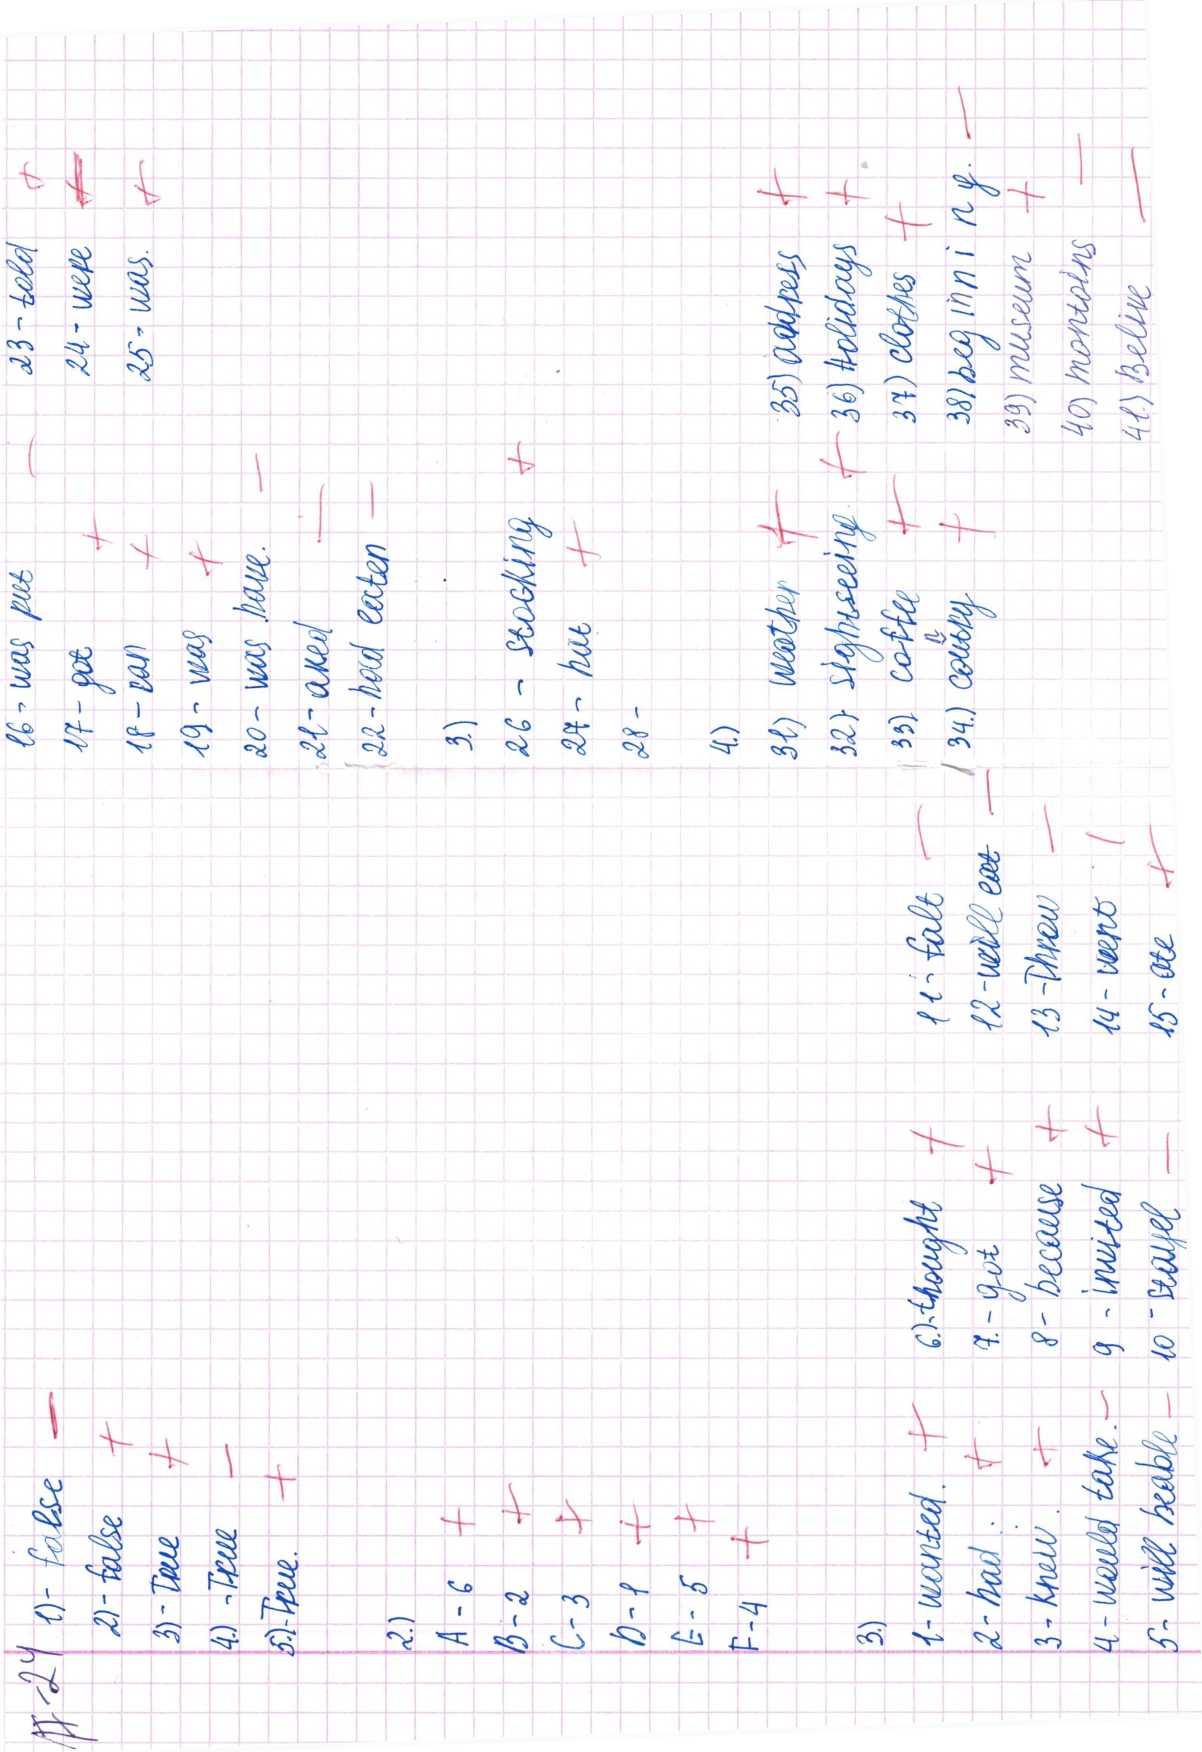 №-24
1)- false —
2)- false +
3)- True +
4.) - True —
5.)- True. +
2.)
A - 6 +
B - 2 +
C - 3 +
D - 1 +
E - 5 +
F - 4 +
3.)
1 - wanted. +
2 - had. +
3 - knew. +
4 - would take. —
5 - will beable —
6.) - thought +
7. - got +
8 - because +
9 - invited +
10 - stayed —
11 - falt —
12 - will eat —
13 - Throw —
14 - went —
15 - ate +
16 - was put —
17 - got +
18 - ran +
19 - was +
20 - was have. —
21 - aked —
22 - had eaten —
23 - told +
24 - were +
25 - was. +
3.)
26 - stocking +
27 - hat +
28 -
4.)
31) weather +
32) sightseeing. +
33) coffee +
34.) country +
35) address +
36) Holidays +
37) clothes +
38) beginning. —
39) museum +
40) montoins —
41.) Belive —